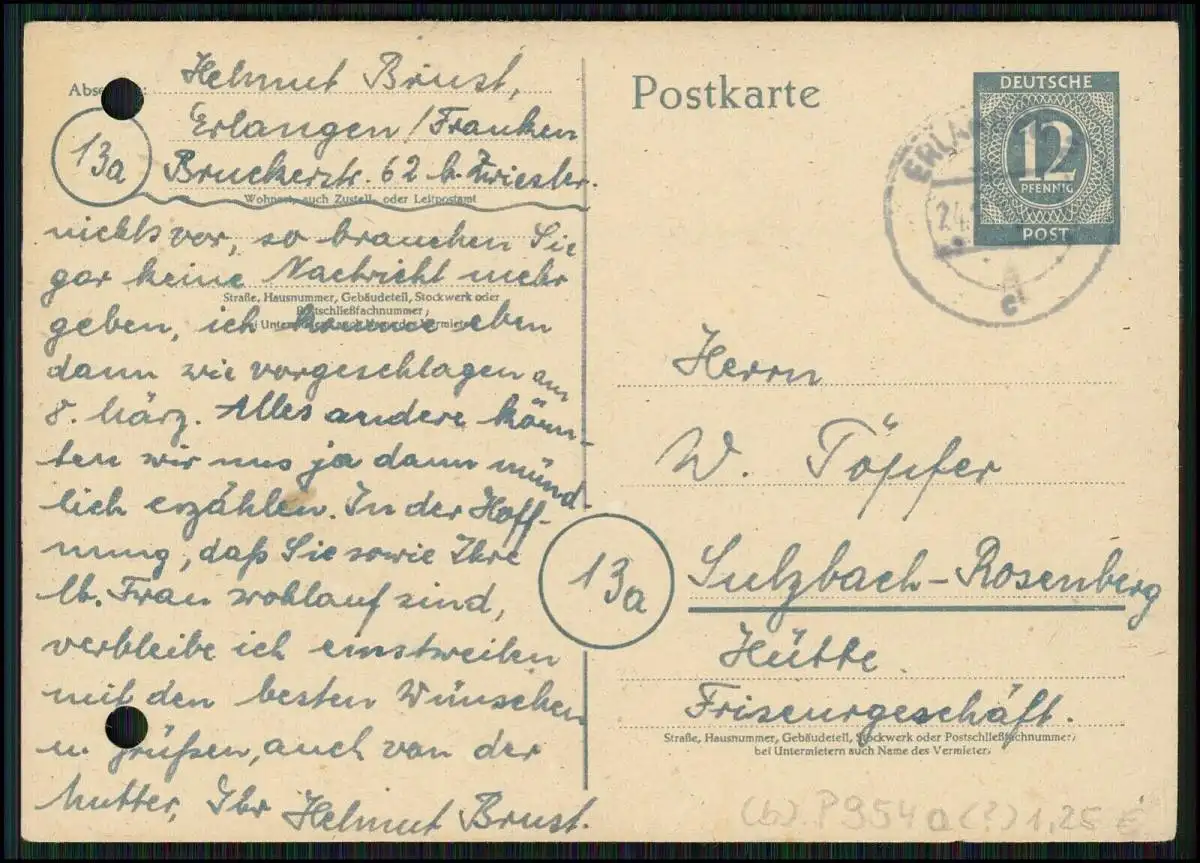 Helmut Brust,
Erlangen / Franken
13a
Bruckerstr. 62 b. Zwiesler.
Wohnort, auch Zustell- oder Leitpostamt
nichts vor, so brauchen Sie
gar keine Nachricht mehr
Straße, Hausnummer, Gebäudeteil, Stockwerk oder
Postschließfachnummer;
geben, ich komme eben
dann wie vorgeschlagen am
8. März. Alles andere könn-
ten wir uns ja dann münd-
lich erzählen. In der Hoff-
nung, daß Sie sowie Ihre
lb. Frau wohlauf sind,
verbleibe ich einstweilen
mit den besten Wünschen
u. Grüßen, auch von der
Mutter, Ihr Helmut Brust.
Postkarte
DEUTSCHE
12
PFENNIG
POST
ERLANGEN
24.
c
Herrn
W. Töpfer
13a
Sulzbach-Rosenberg
Hütte.
Friseurgeschäft.
Straße, Hausnummer, Gebäudeteil, Stockwerk oder Postschließfachnummer;
bei Untermietern auch Name des Vermieters
(b). P954a (?) 1,25 €